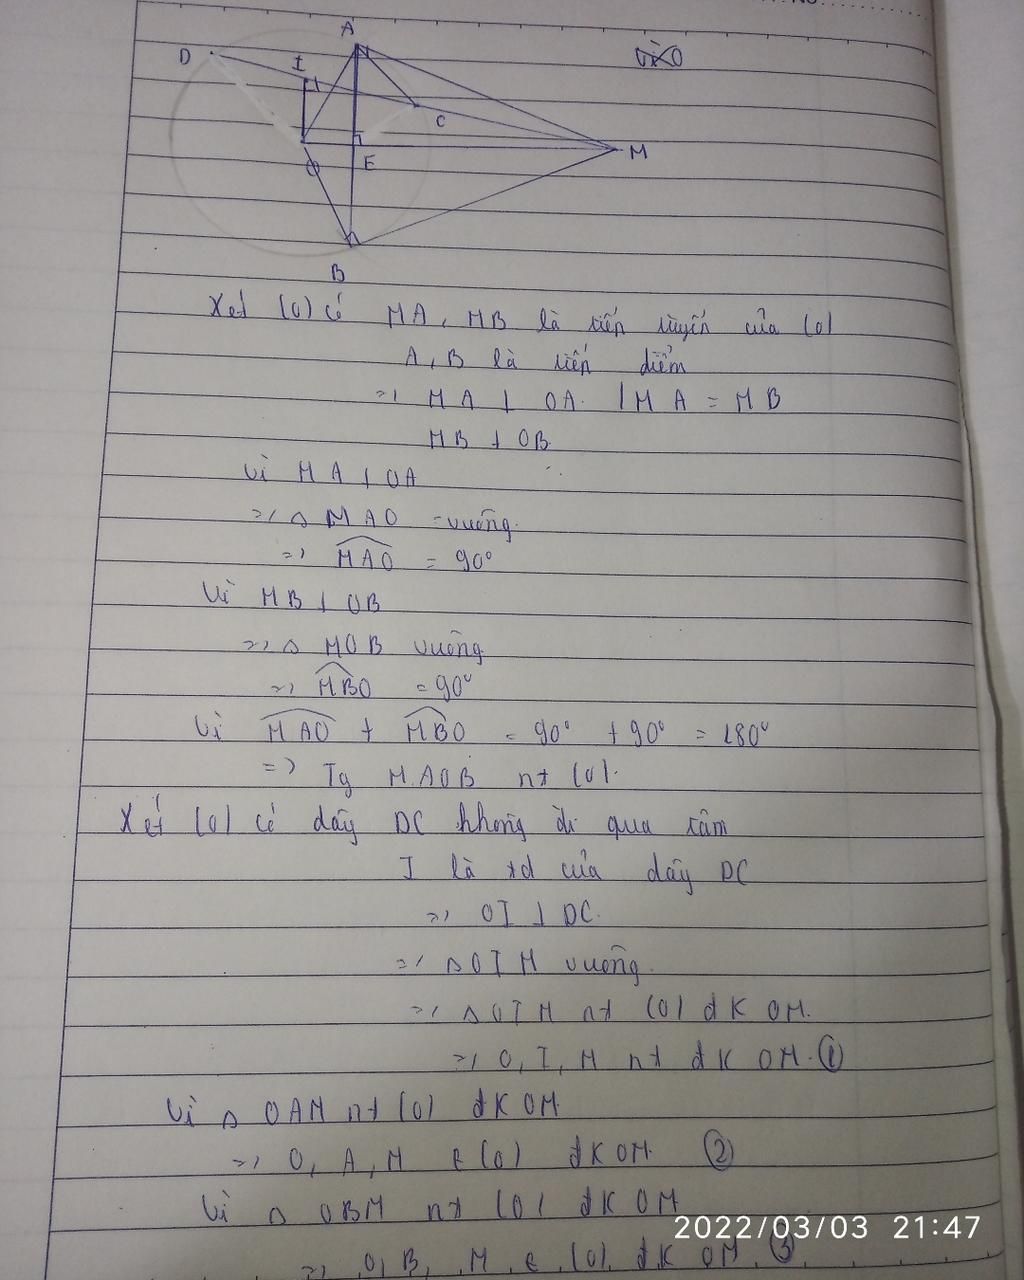 A
D
I
C
M
O
E
B
Xét (O) có MA, MB là tiếp tuyến của (O)
A, B là tiếp điểm
=> MA ⊥ OA. | MA = MB
MB ⊥ OB
Vì MA ⊥ OA
=> △ MAO vuông
=> MAO = 90°
Vì MB ⊥ OB
=> △ MOB vuông
=> MBO = 90°
Vì MAO + MBO = 90° + 90° = 180°
=> Tg MAOB nt (O).
Xét (O) có dây DC không đi qua tâm
I là td của dây DC
=> OI ⊥ DC.
=> △OIM vuông
=> △OIM nt (O) đK OM.
=> O, I, M nt đK OM. ①
Vì △ OAM nt (O) đK OM
=> O, A, M ∈ (O) đK OM. ②
Vì △ OBM nt (O) đK OM
=> O, B, M ∈ (O) đK OM ③
2022/03/03 21:47